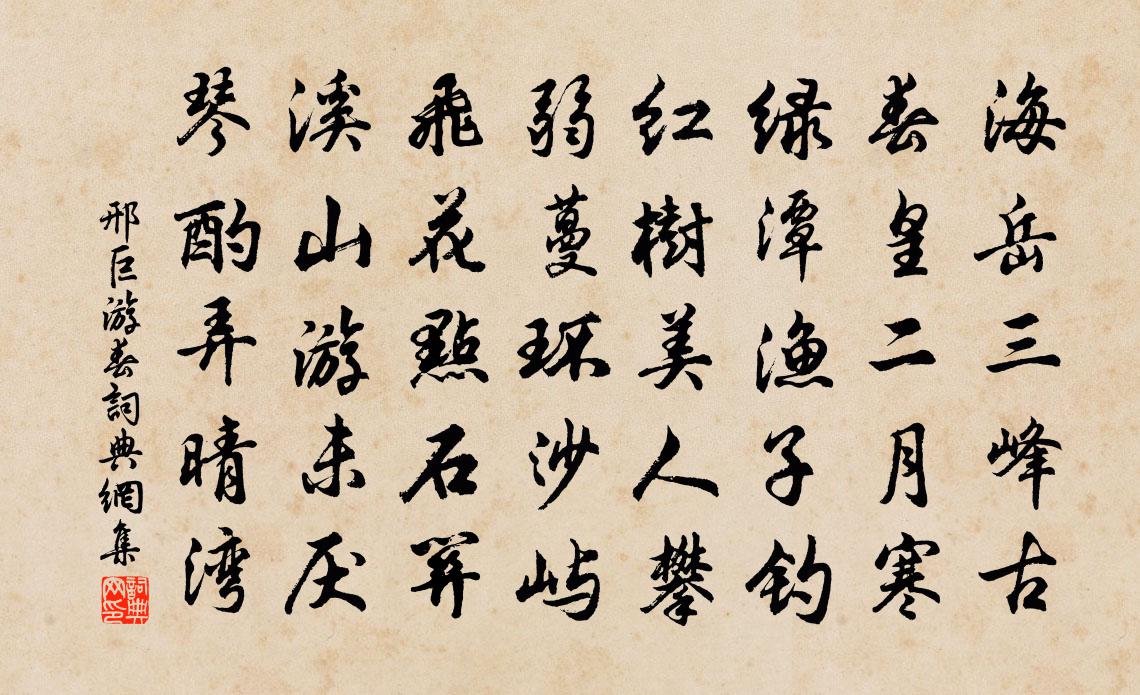 海岳三峰古
春皇二月寒
绿潭渔子钓
红樹美人攀
弱蔓环沙屿
飛花點石關
溪山游未厌
琴酌弄晴湾
邢巨游春詞典網集
詞典网印